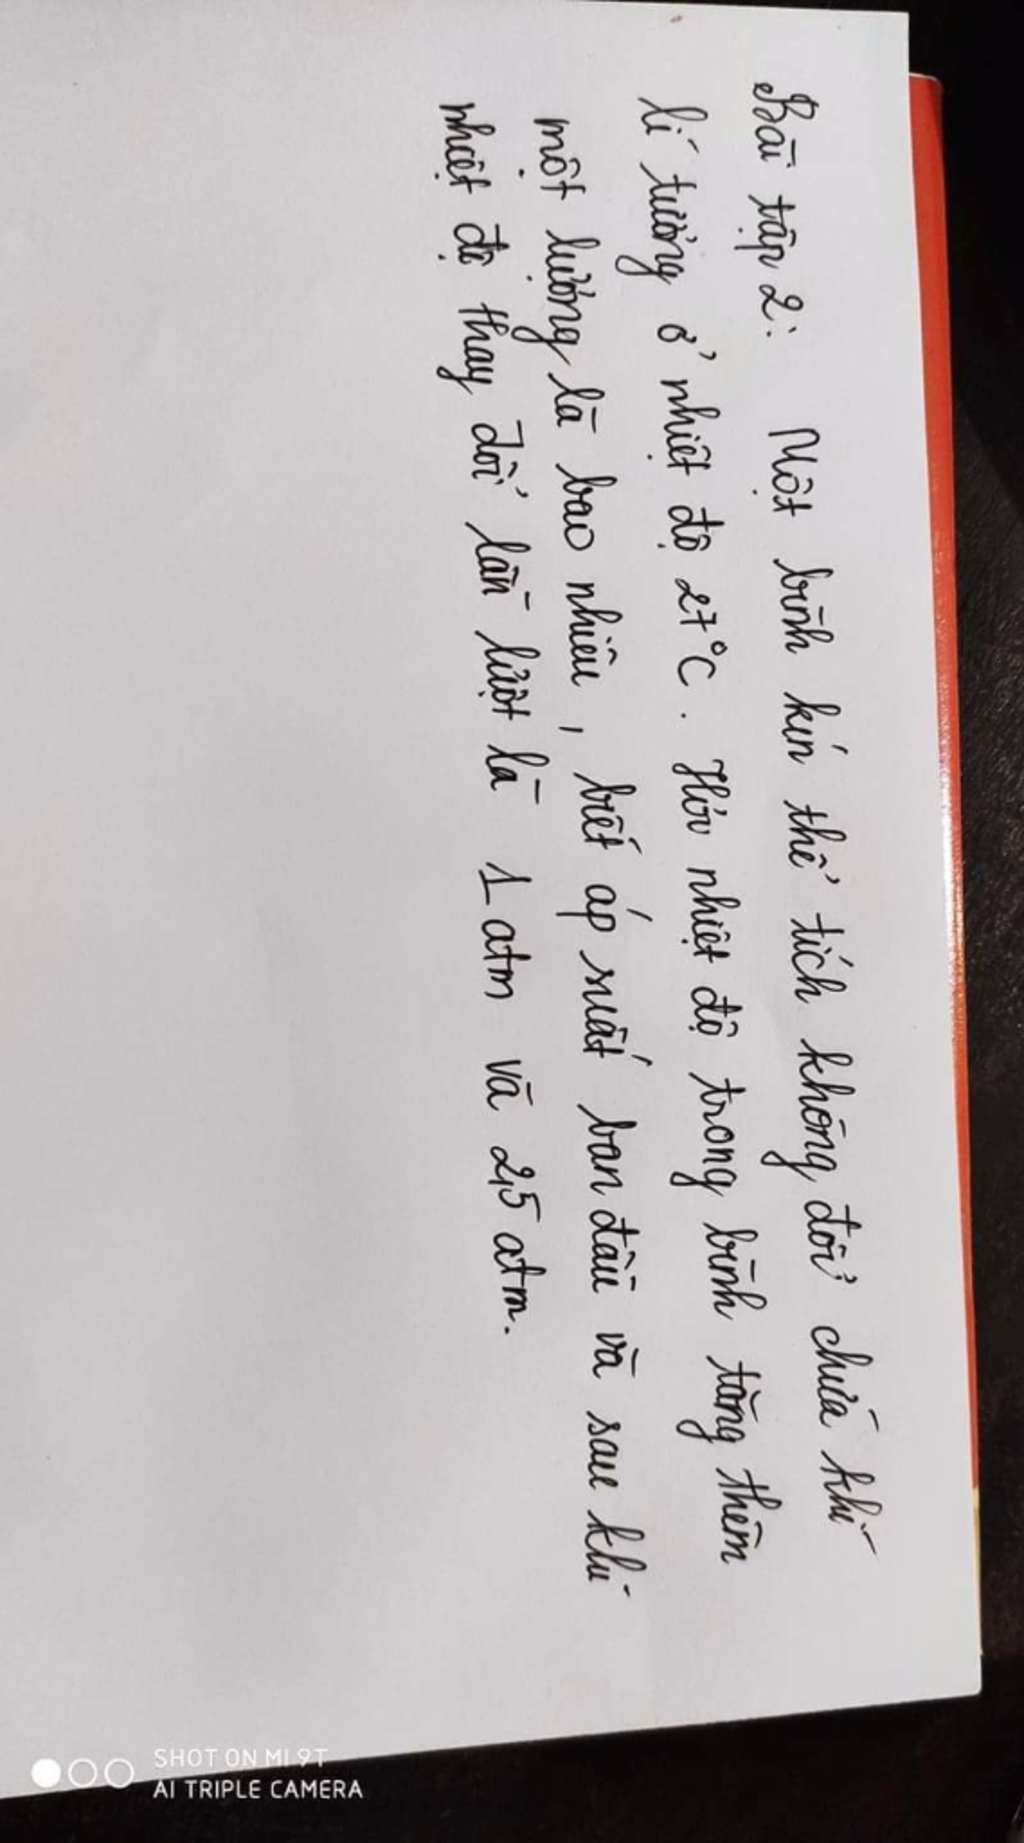 Bài tập 2: Một bình kín thể tích không đổi chứa khí
lí tưởng ở nhiệt độ 27°C. Hỏi nhiệt độ trong bình tăng thêm
một lượng là bao nhiêu, biết áp suất ban đầu và sau khi
nhiệt độ thay đổi lần lượt là 1 atm và 2,5 atm.
SHOT ON MI 9T
AI TRIPLE CAMERA